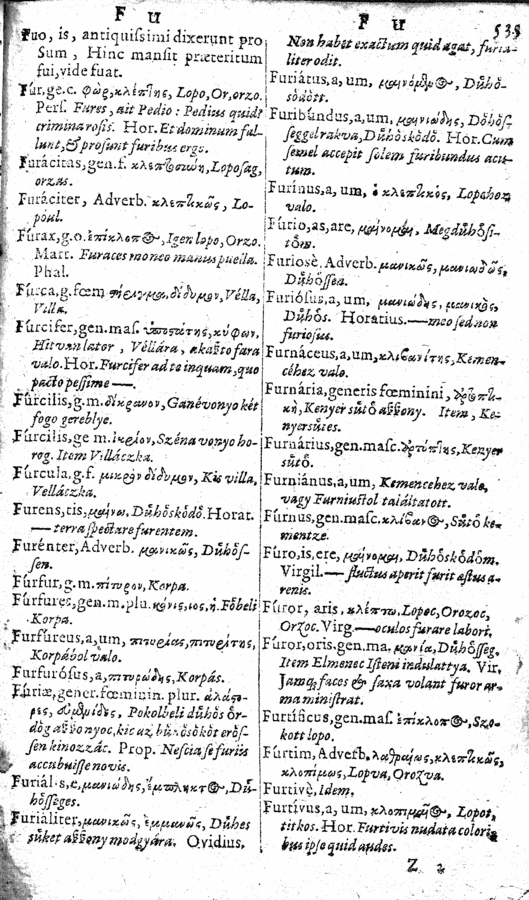 F u
F u
539
Fuo, is, antiquissimi dixerunt pro
Sum, Hinc mansit præteritum
fui, vide fuat.
Fur, ge. c. φώρ, κλέπτης, Lopo, Or, orzo.
Pers. Fures, ait Pedio: Pedius quid?
crimina rosis. Hor. Et dominum ful-
lunt, & prosunt furibus ergo.
Furácitas, gen. f. κλεπτοσύνη, Loposag,
orzas.
Furáciter, Adverb. κλεπτικῶς, Lo-
pòul.
Fúrax, g. o. ἐπίκλοπος, Igen lopo, Orzo.
Mart. Furaces moneo manus puella.
Phal.
Furca, g. fœm δίδυμον, Vélla,
Villa.
Fúrcifer, gen. mas. κύφων,
Hitvan lator, Véllára, akaßto fara
valo. Hor. Furcifer ad te inquam, quo
pacto pessime —.
Fúrcilis, g. m. δίκρανον, Ganévonyo két
fogo gereblye.
Fúrcilis, ge m. ἰκρίον, Széna vonyo ho-
rog. Item Villáczka.
Fúrcula, g. f. μικρὸν δίδυμον, Kis villa,
Velláczka.
Furens, tis, μαίνω. Dühöskődő. Horat.
— terra spectare furentem.
Furénter, Adverb. μανικῶς, Dühös-
sen.
Fúrfur, g. m. πίτυρον, Korpa.
Fúrfures, gen. m. plu. κόνις, ιος, ἡ. Föbeli
Korpa.
Furfúreus, a, um, πιτυρίας, πιτυρίτης,
Korpábol valo.
Furfurósus, a, πιτυρώδης, Korpás.
Fúriæ, gener. fœminin. plur. ἀλάστο-
ρες, Pokolbeli dühös ör-
dög aßßonyoc, kic az bünösököt erös-
sen kinozzác. Prop. Nescia se furiis
accubuisse novis.
Furiális, e, μανιώδης, ἐμπληκτος, Dü-
hösseges.
Furiáliter, μανικῶς, ἐμμανῶς, Dühes
süket aßßony modgyára. Ovidius,
Non habet exactum quid agat, furia-
liter odit.
Furiátus, a, um, Dühö-
södött.
Furibúndus, a, um, μανιώδης, Dohös-
séggel rakva, Dühösködő. Hor. Cum
semel accepit solem furibundus acu-
tum.
Furínus, a, um, ὁ κλεπτικός, Lopához
valo.
Fúrio, as, are, Megdühössi-
töm.
Furiosè, Adverb. μανικῶς, μανιωδῶς,
Dühössen.
Furiósus, a, um, μανιώδης, μανικός,
Dühös. Horatius. — meo sed non
furiosus.
Furnáceus, a, um, κλιβανίτης, Kemen-
céhez valo.
Furnária, generis fœminini, ἀρτοπτι-
κή, Kenyer sütő aßßony. Item, Ke-
nyersütes.
Furnárius, gen. masc. Kenyer
sütő.
Furniánus, a, um, Kemencehez valo,
vagy Furniustol taláitatott.
Fúrnus, gen. masc. κλίβανος, Sütő ke-
mentze.
Fúro, is, ere, μαίνομαι, Dühösködöm.
Virgil. — fluctus aperit furit æstus a-
renis.
Fúror, aris, κλέπτω, Lopoc, Orozoc,
Orzoc. Virg. — oculos furare labori.
Furor, oris, gen. ma. μανία, Dühösség.
Item Elmenec Isteni indulattya. Vir.
Jamq; faces & saxa volant furor ar-
ma ministrat.
Furtíficus, gen. mas. ἐπίκλοπος, Szo-
kott lopo.
Furtim, Adverb. λαθραίως, κλεπτικῶς,
κλοπίμως, Lopva, Orozva.
Furtivè, Idem.
Furtívus, a, um, κλοπιμαῖος, Lopot,
titkos. Hor. Furtivis nudata colori-
bus ipse quid audes.
Z 2